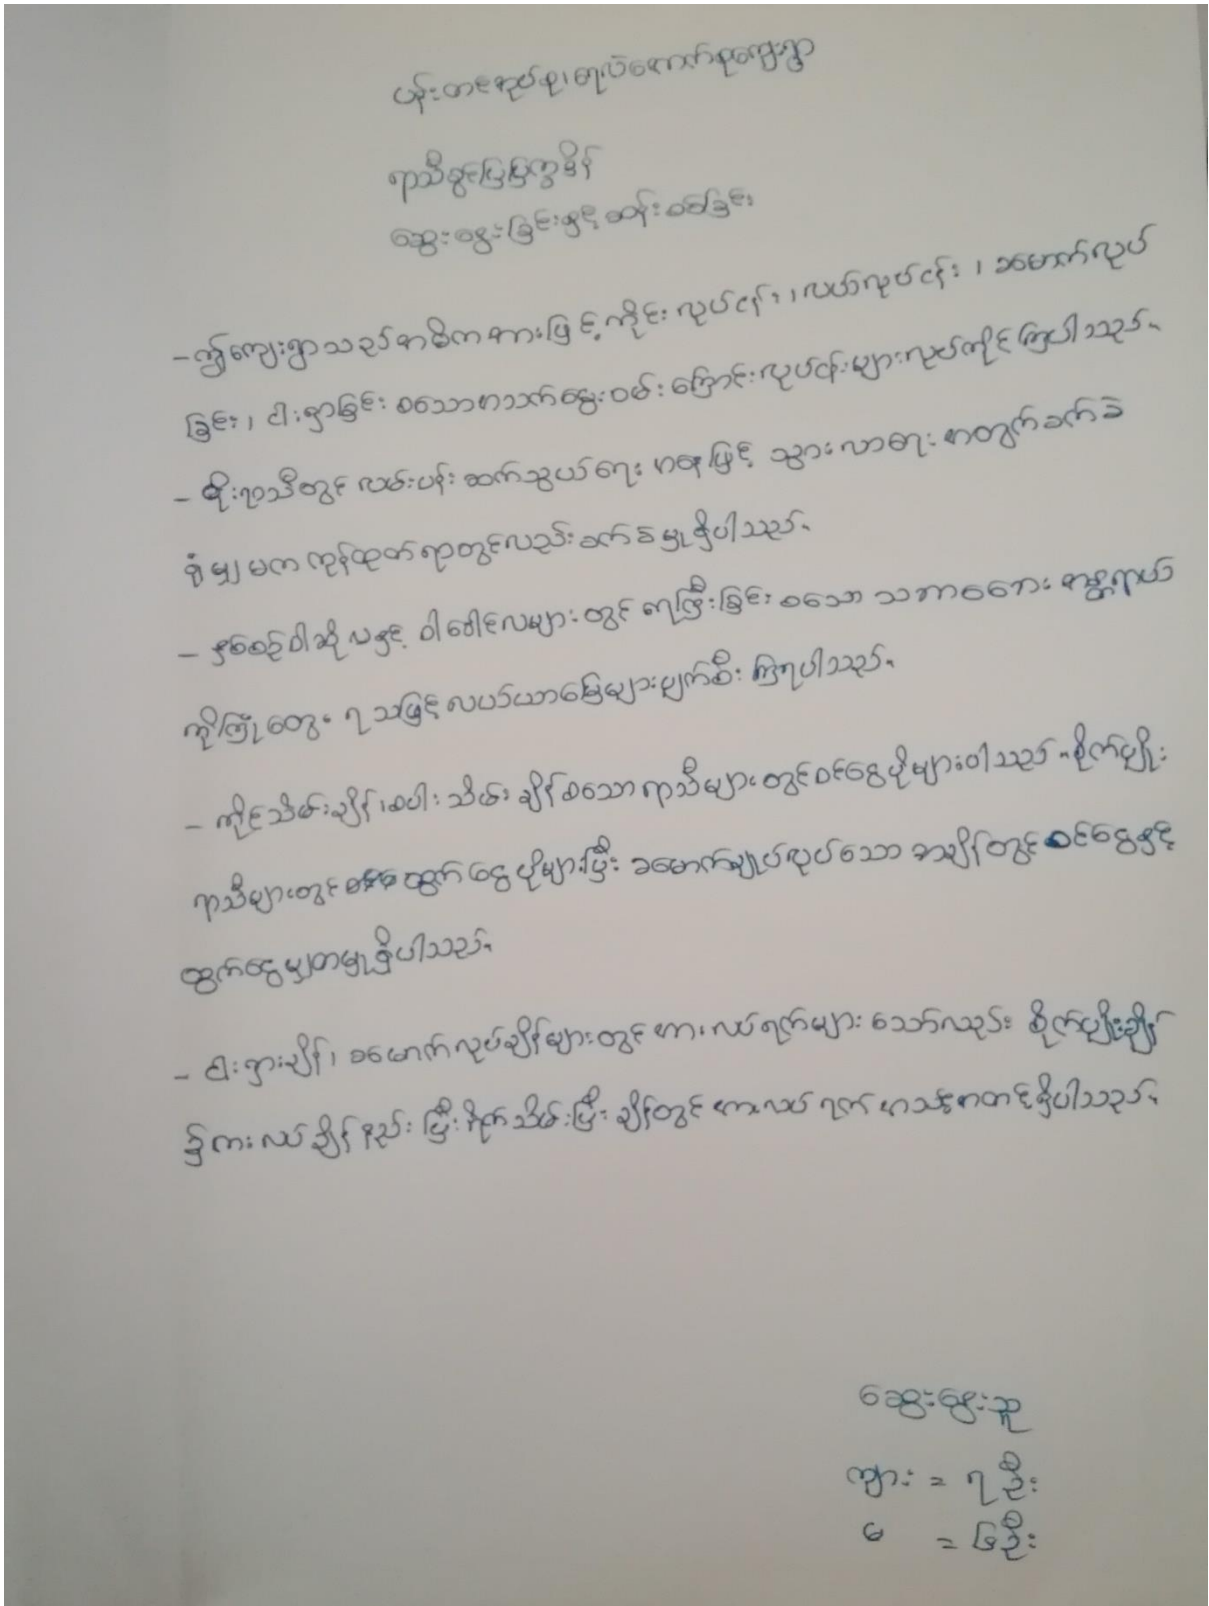 ပန်းတင်အုပ်စု၊ ရေလဲကောက်စုကျေးရွာ
ရာသီခွင်ပြပြက္ခဒိန်
ဆွေးနွေးခြင်းနှင့်ဆန်းစစ်ခြင်း
- ဤကျေးရွာသည်အဓိကအားဖြင့်ကိုင်းလုပ်ငန်း၊ လယ်လုပ်ငန်း၊ ခမောက်လုပ်
ခြင်း၊ ငါးရှာခြင်း စသောအသက်မွေးဝမ်းကြောင်းလုပ်ငန်းများလုပ်ကိုင်ကြပါသည်။
- မိုးရာသီတွင် လမ်းပန်းဆက်သွယ်ရေး အနေဖြင့် သွားလာရေး အတွက်ခက်ခဲ
ရုံမျှမက ကုန်ထုတ်ရာတွင်လည်းခက်ခဲမှုရှိပါသည်။
- နှစ်စဉ်ဝါဆိုလနှင့် ဝါခေါင်လများတွင် ရေကြီးခြင်းစသော သဘာဝဘေး အန္တရာယ်
ကိုကြုံတွေ့ရသဖြင့်လယ်ယာမြေများပျက်စီးကြရပါသည်။
- ကိုင်းသိမ်းချိန်၊ စပါးသိမ်းချိန်စသောရာသီများတွင်ဝင်ငွေပိုများပါသည်။ စိုက်ပျိုး
ရာသီများတွင် ထွက်ငွေပိုများပြီး ခမောက်ချုပ်လုပ်သော အချိန်တွင် ဝင်ငွေနှင့်
ထွက်ငွေမျှတမှုရှိပါသည်။
- ငါးရှားချိန်၊ ခမောက်လုပ်ချိန်များတွင် အားလပ်ရက်များ သော်လည်း စိုက်ပျိုးချိန်
၌အားလပ်ချိန်နည်းပြီး ရိတ်သိမ်းပြီးချိန်တွင် အားလပ်ရက် အသင့်အတင့်ရှိပါသည်။
ဆွေးနွေးသူ
ကျား = ၇ ဦး
မ = ၆ဦး